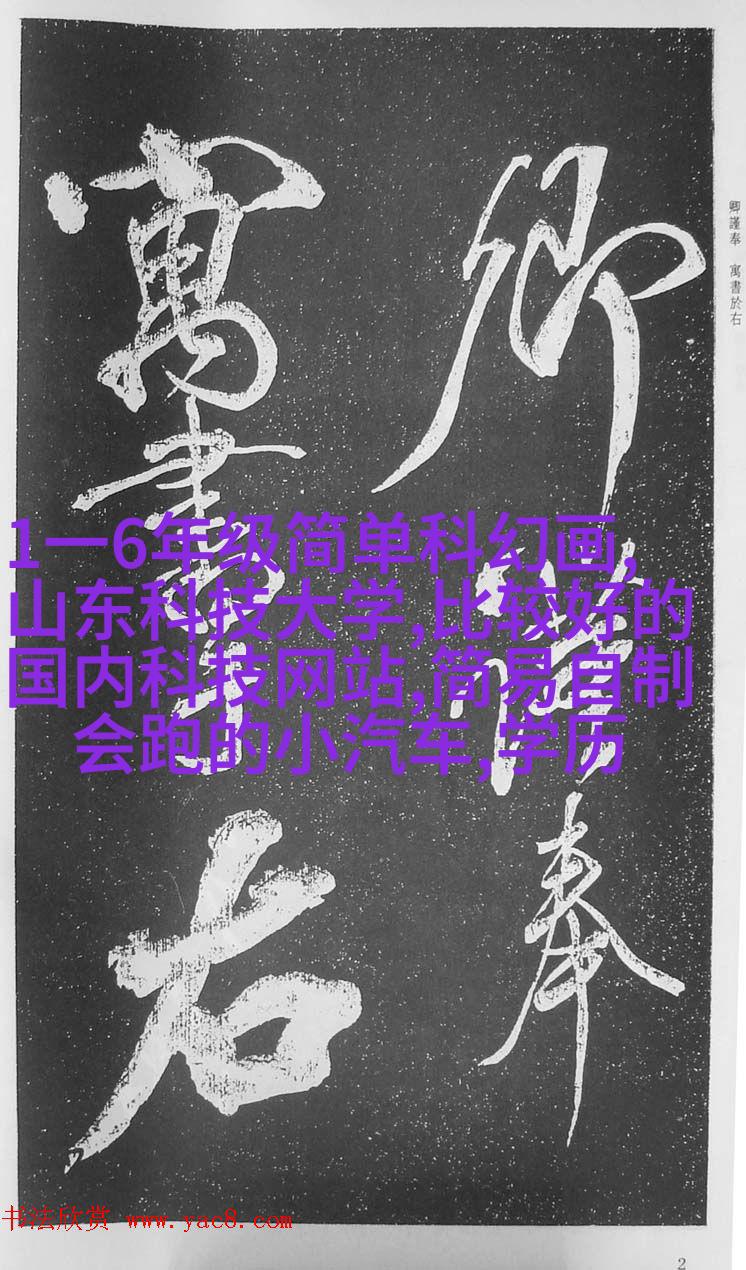 卿謹奉
寓書於右
卿謹奉 寓書於右
1一6年级简单科幻画,
山东科技大学,比较好的
国内科技网站,简易自制
会跑的小汽车,学历
书法欣赏 www.yac8.com
2